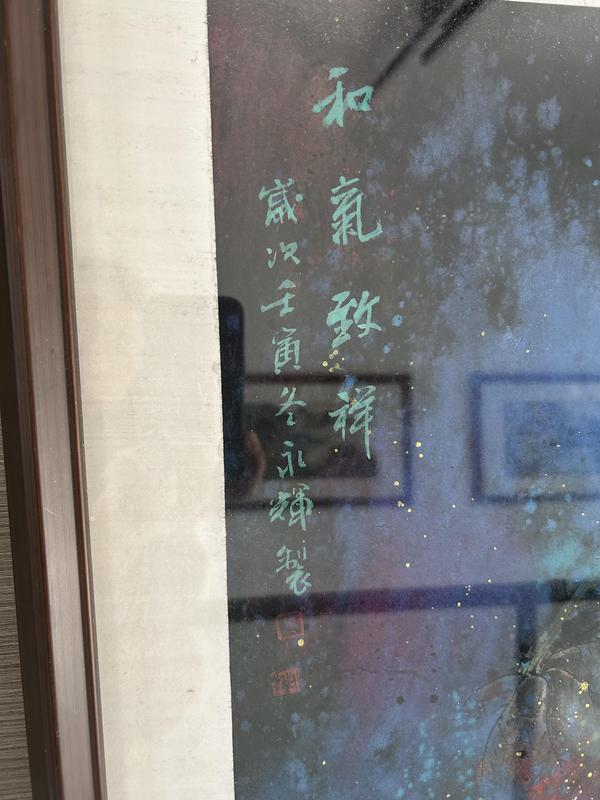 和氣致祥
歲次壬寅冬永輝製